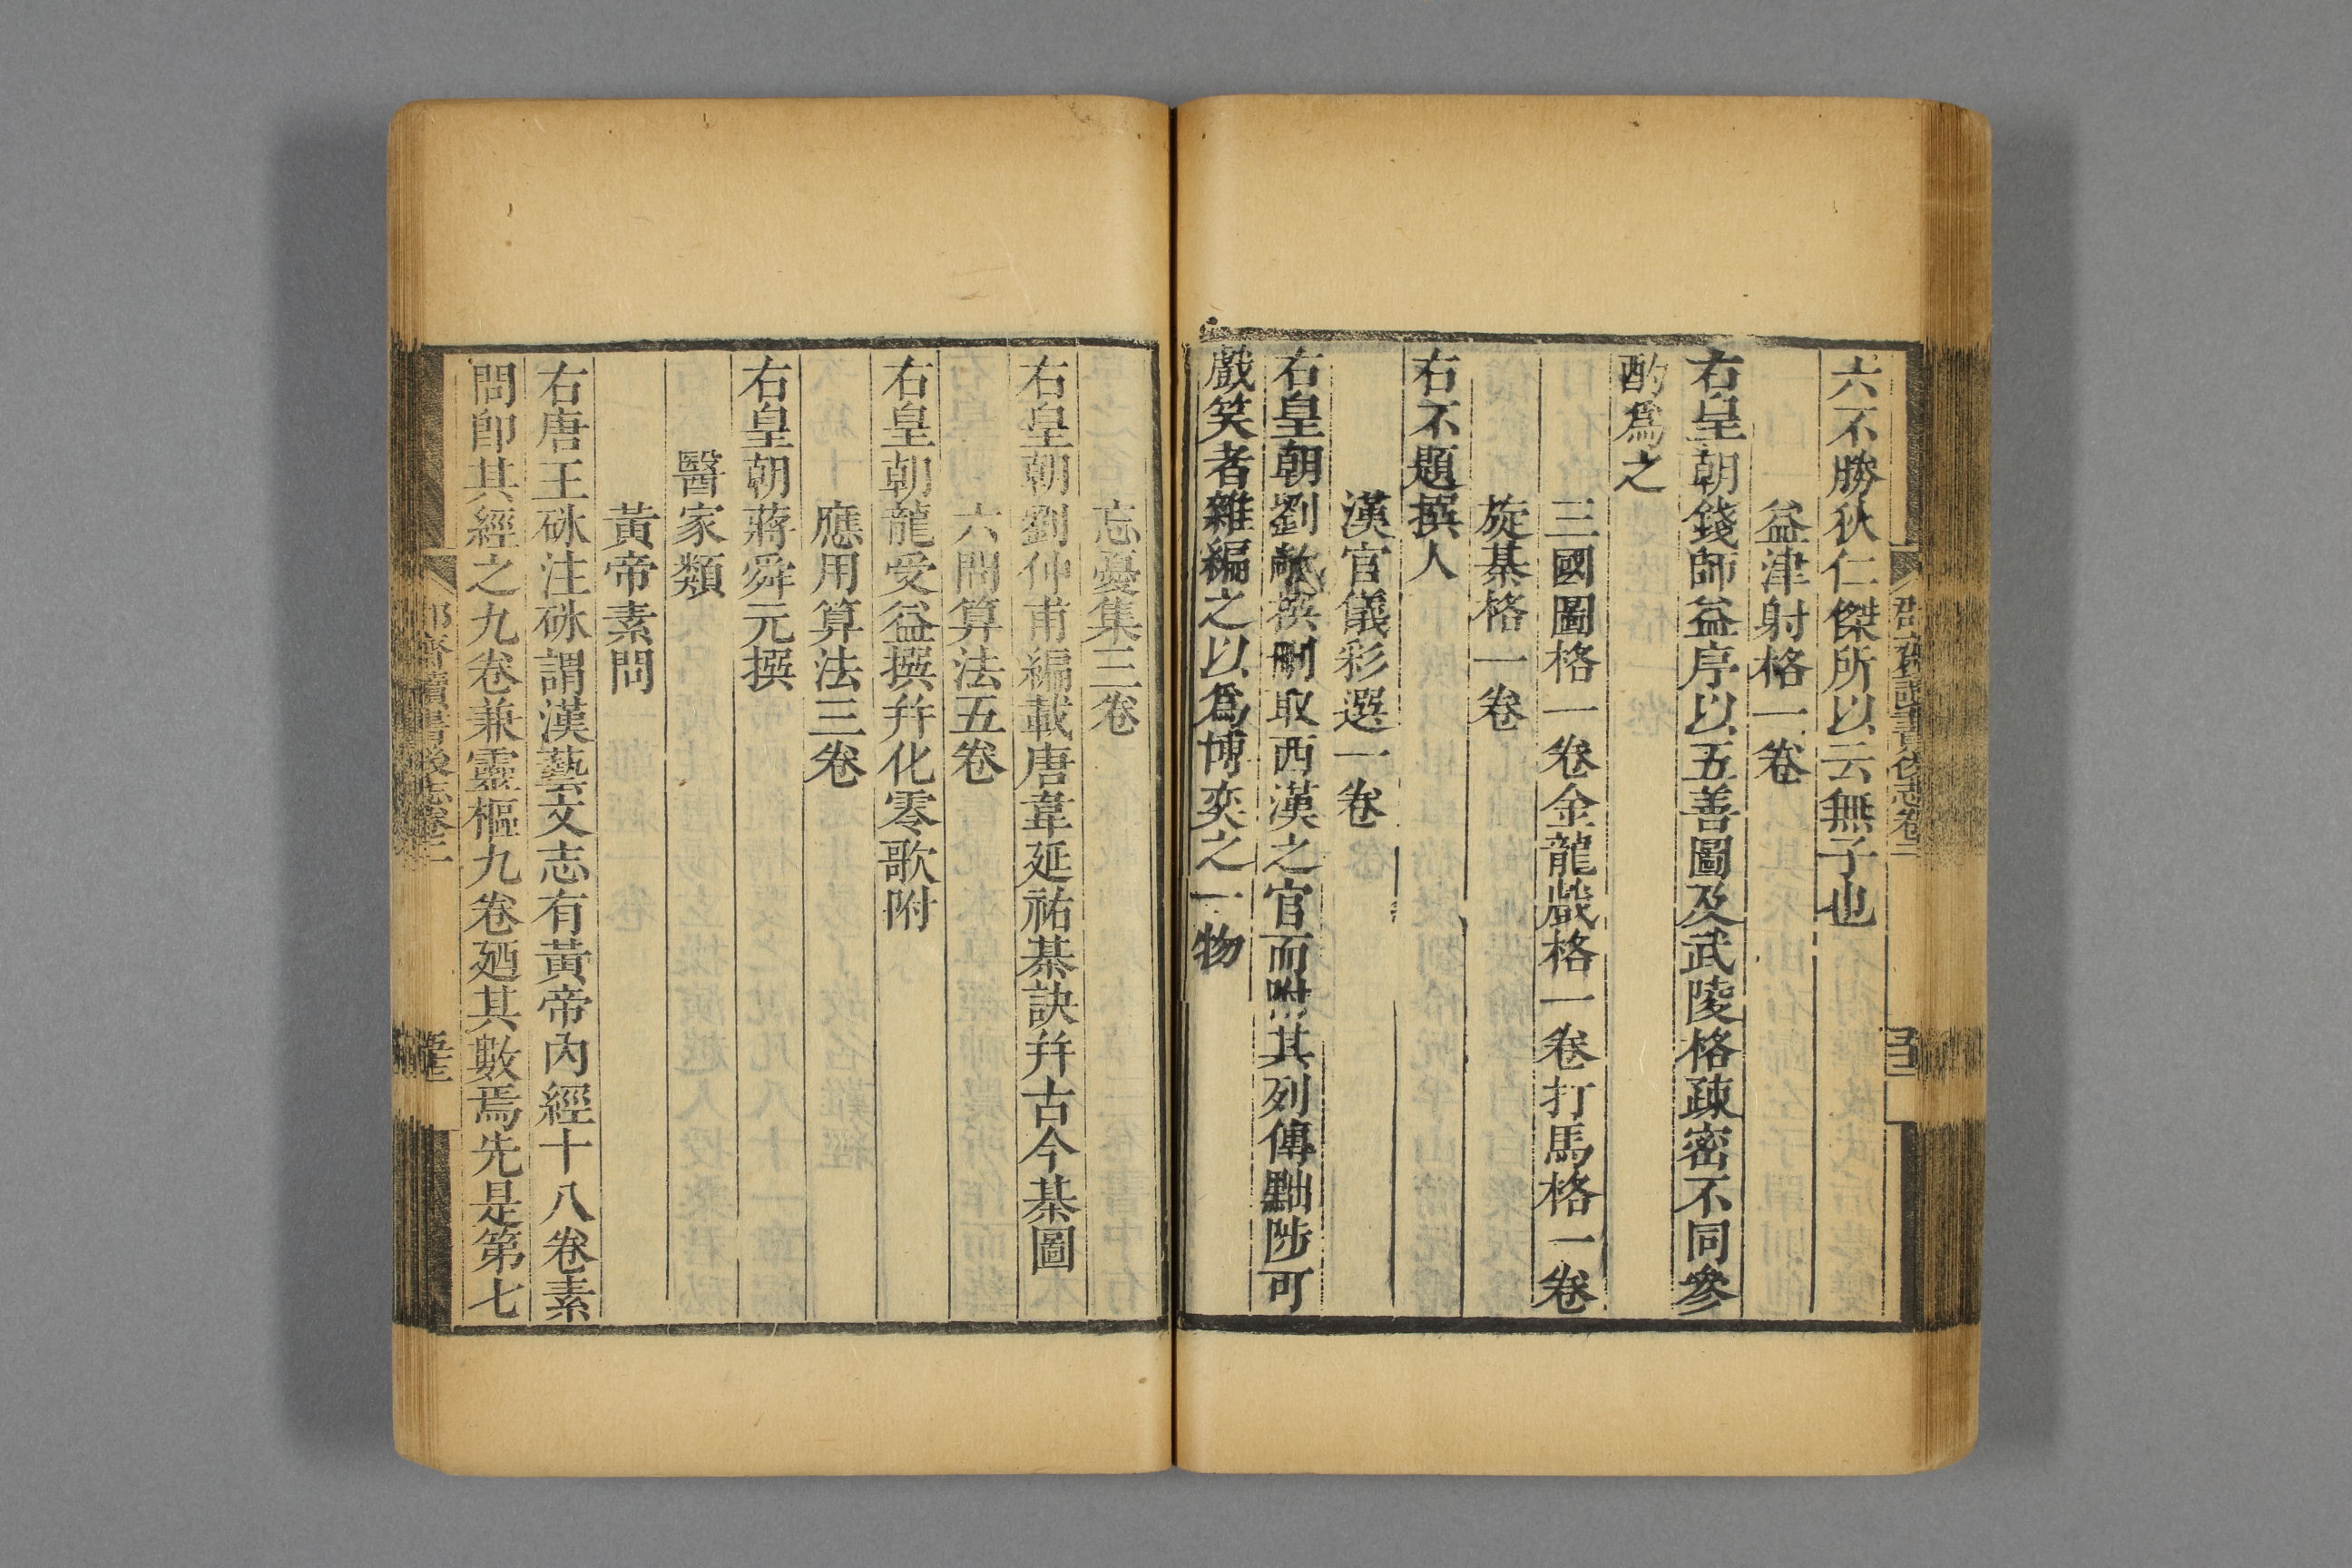 六不勝狄仁傑所以云無子也
益津射格一卷
右皇朝錢師益序以五善圖及武陵格疎密不同參
酌爲之
三國圖格一卷金龍戲格一卷打馬格一卷
旋棊格一卷
右不題撰人
漢官儀彩選一卷
右皇朝劉敞撰刪取西漢之官而附其列傳黜陟可
戲笑者雜編之以爲博奕之一物
忘憂集三卷
右皇朝劉仲甫編載唐韋延祐棊訣幷古今棊圖
六問算法五卷
右皇朝龍受益撰幷化零歌附
應用算法三卷
右皇朝蔣舜元撰
醫家類
黃帝素問
右唐王砅注砅謂漢藝文志有黃帝內經十八卷素
問卽其經之九卷兼靈樞九卷廼其數焉先是第七
讀書後志卷二